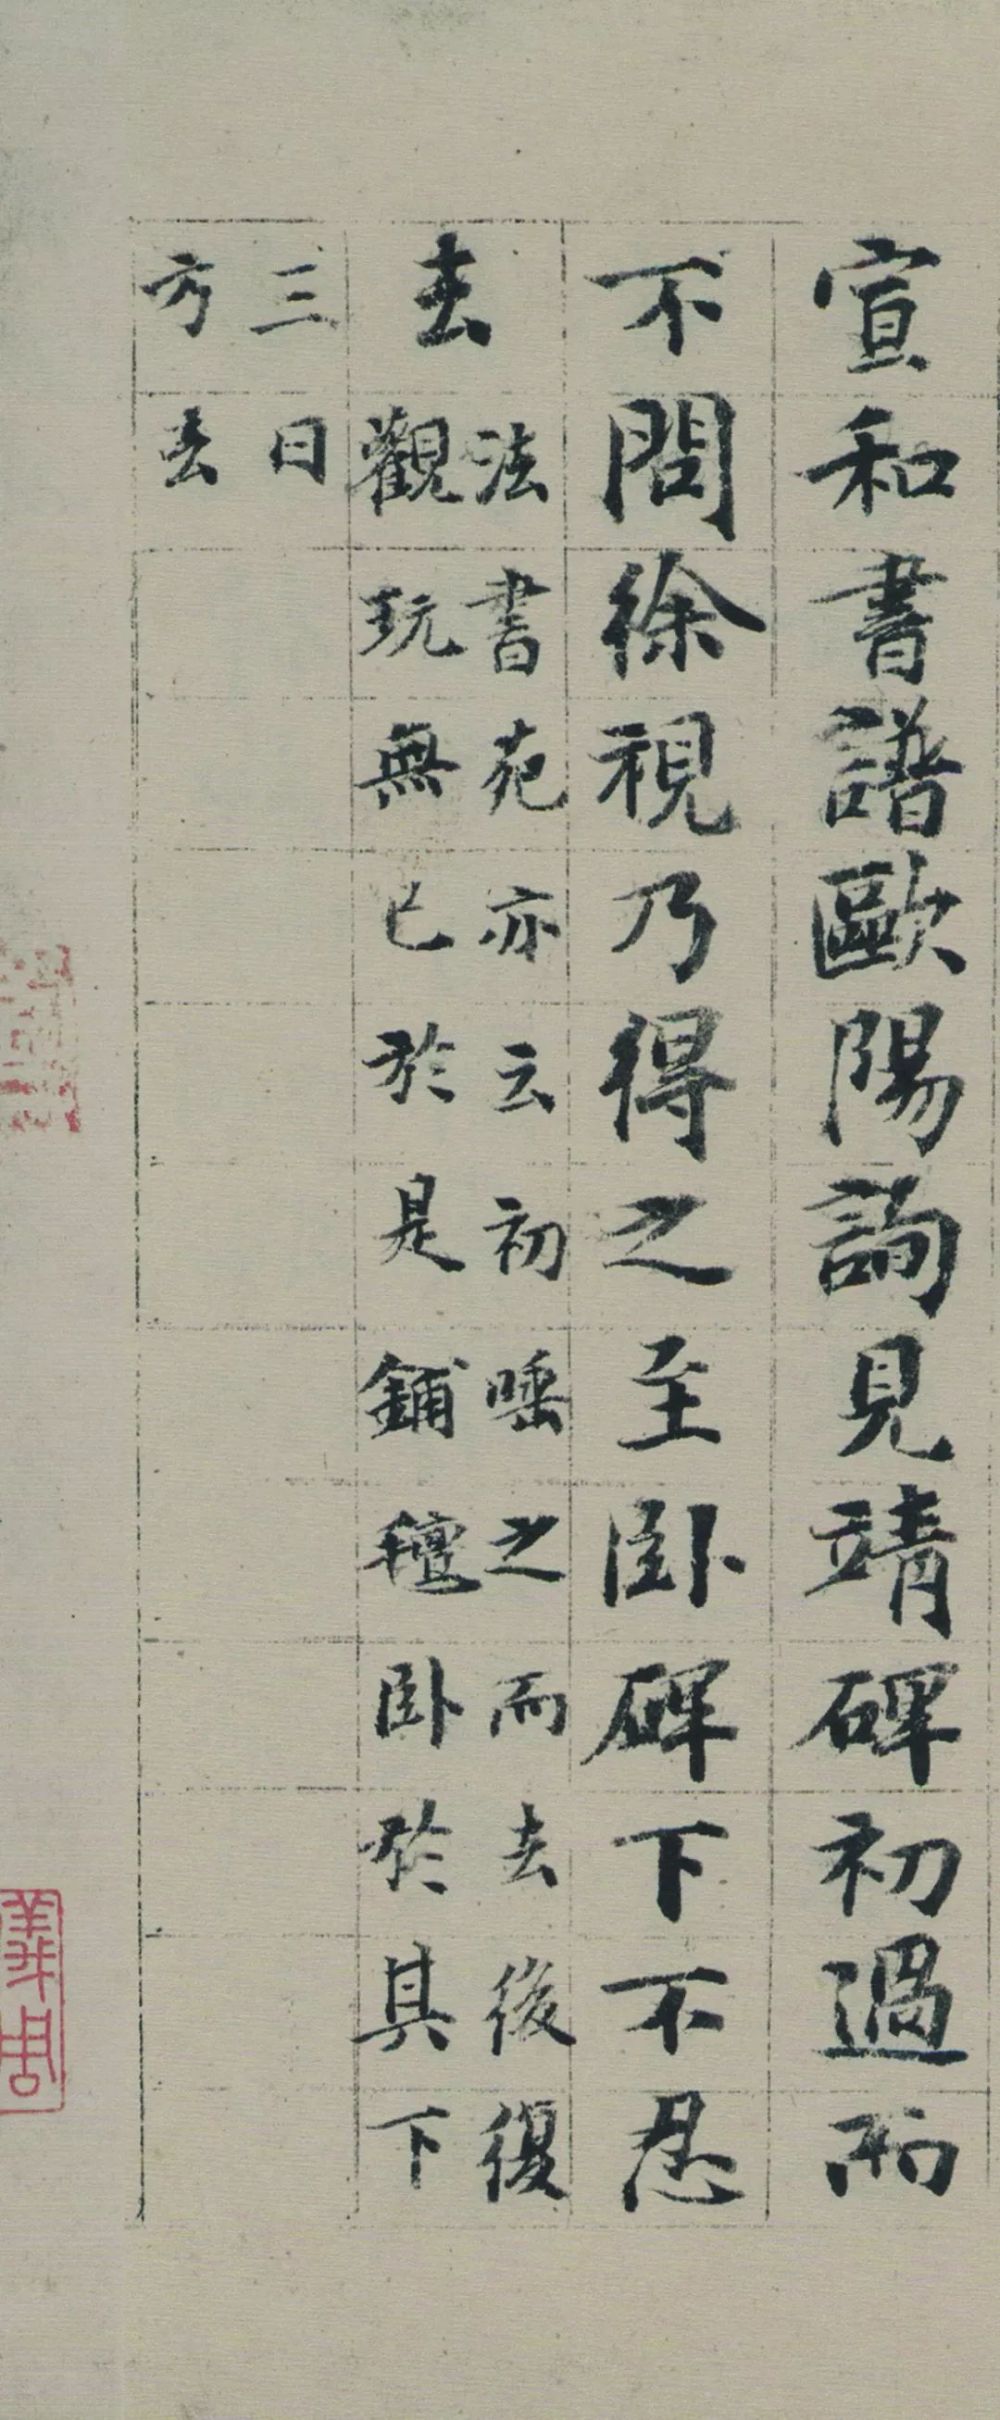 宣和書譜歐陽詢見靖碑初過而
不問徐視乃得之至臥碑下不忍
去
法書苑亦云初唾之而去後復
觀玩無已於是鋪氊臥於其下
三日
方去